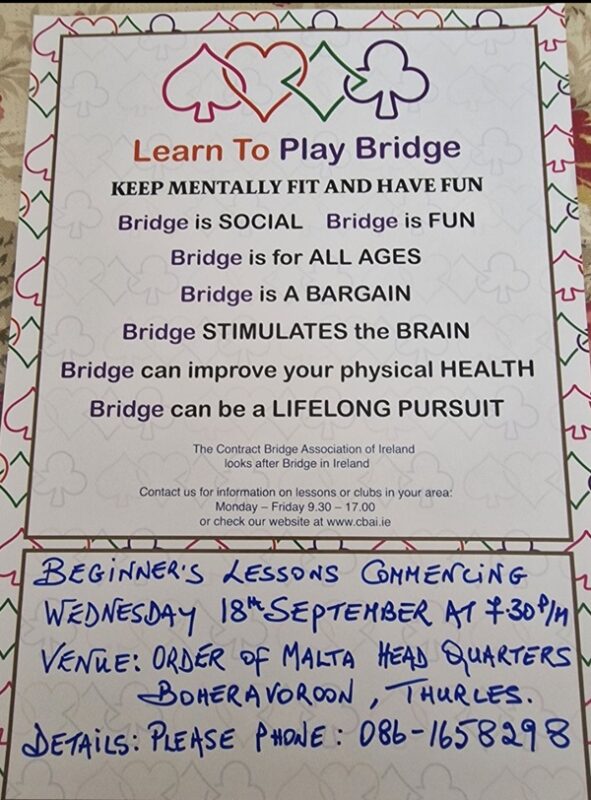 Learn To Play Bridge
KEEP MENTALLY FIT AND HAVE FUN
Bridge is SOCIAL Bridge is FUN
Bridge is for ALL AGES
Bridge is A BARGAIN
Bridge STIMULATES the BRAIN
Bridge can improve your physical HEALTH
Bridge can be a LIFELONG PURSUIT
The Contract Bridge Association of Ireland
looks after Bridge in Ireland
Contact us for information on lessons or clubs in your area:
Monday – Friday 9.30 – 17.00
or check our website at www.cbai.ie
BEGINNER'S LESSONS COMMENCING
WEDNESDAY 18th SEPTEMBER AT 7.30 P/M
VENUE: ORDER OF MALTA HEAD QUARTERS
BOHERAVOROON, THURLES.
DETAILS: PLEASE PHONE: 086-1658298